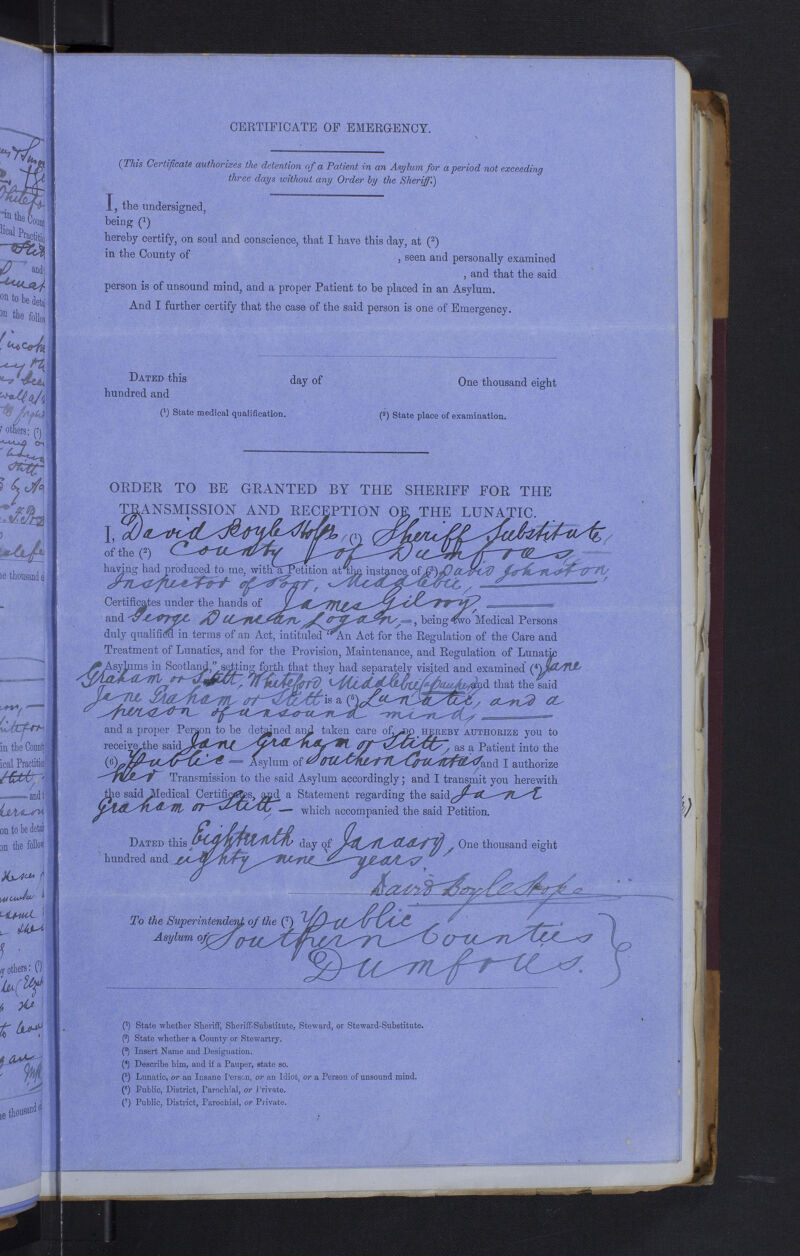 CERTIFICATE OF EMERGENCY.
(This Certificate authorizes the detention of a Patient in an Asylum for a period not exceeding
three days without any Order by the Sheriff.)
I, the undersigned,
being (1)
hereby certify, on soul and conscience, that I have this day, at (2)
in the County of , seen and personally examined
, and that the said
person is of unsound mind, and a proper Patient to be placed in an Asylum.
And I further certify that the case of the said person is one of Emergency.
DATED this day of One thousand eight
hundred and
(1) State medical qualification. (2) State place of examination.
ORDER TO BE GRANTED BY THE SHERIFF FOR THE
TRANSMISSION AND RECEPTION OF THE LUNATIC.
I, David Boyle Hope, (1) Sheriff Substitute,
of the (2) County of Dumfries
having had produced to me, with a Petition at the instance of (3) David Johnston,
Inspector of Poor, Middlebie,
Certificates under the hands of James Gilroy,
and George Duncan Logan, being two Medical Persons
duly qualified in terms of an Act, intituled "An Act for the Regulation of the Care and
Treatment of Lunatics, and for the Provision, Maintenance, and Regulation of Lunatic
Asylums in Scotland," setting forth that they had separately visited and examined (4) Jane
Graham or Stitt, Whiteford Middlebie (a Pauper) and that the said
Jane Graham or Stitt is a (5) Lunatic, and a
person of unsound mind,
and a proper Person to be detained and taken care of, DO HEREBY AUTHORIZE you to
receive the said Jane Graham or Stitt, as a Patient into the
(6) Public — Asylum of Southern Counties and I authorize
Her Transmission to the said Asylum accordingly; and I transmit you herewith
the said Medical Certificates, and a Statement regarding the said Jane
Graham or Stitt — which accompanied the said Petition.
DATED this Eighteenth day of January, One thousand eight
hundred and eighty nine years
David Boyle Hope
To the Superintendent of the (7) Public
Asylum of Southern Counties
Dumfries.
(1) State whether Sheriff, Sheriff-Substitute, Steward, or Steward-Substitute.
(2) State whether a County or Stewartry.
(3) Insert Name and Designation.
(4) Describe him, and if a Pauper, state so.
(5) Lunatic, or an Insane Person, or an Idiot, or a Person of unsound mind.
(6) Public, District, Parochial, or Private.
(7) Public, District, Parochial, or Private.